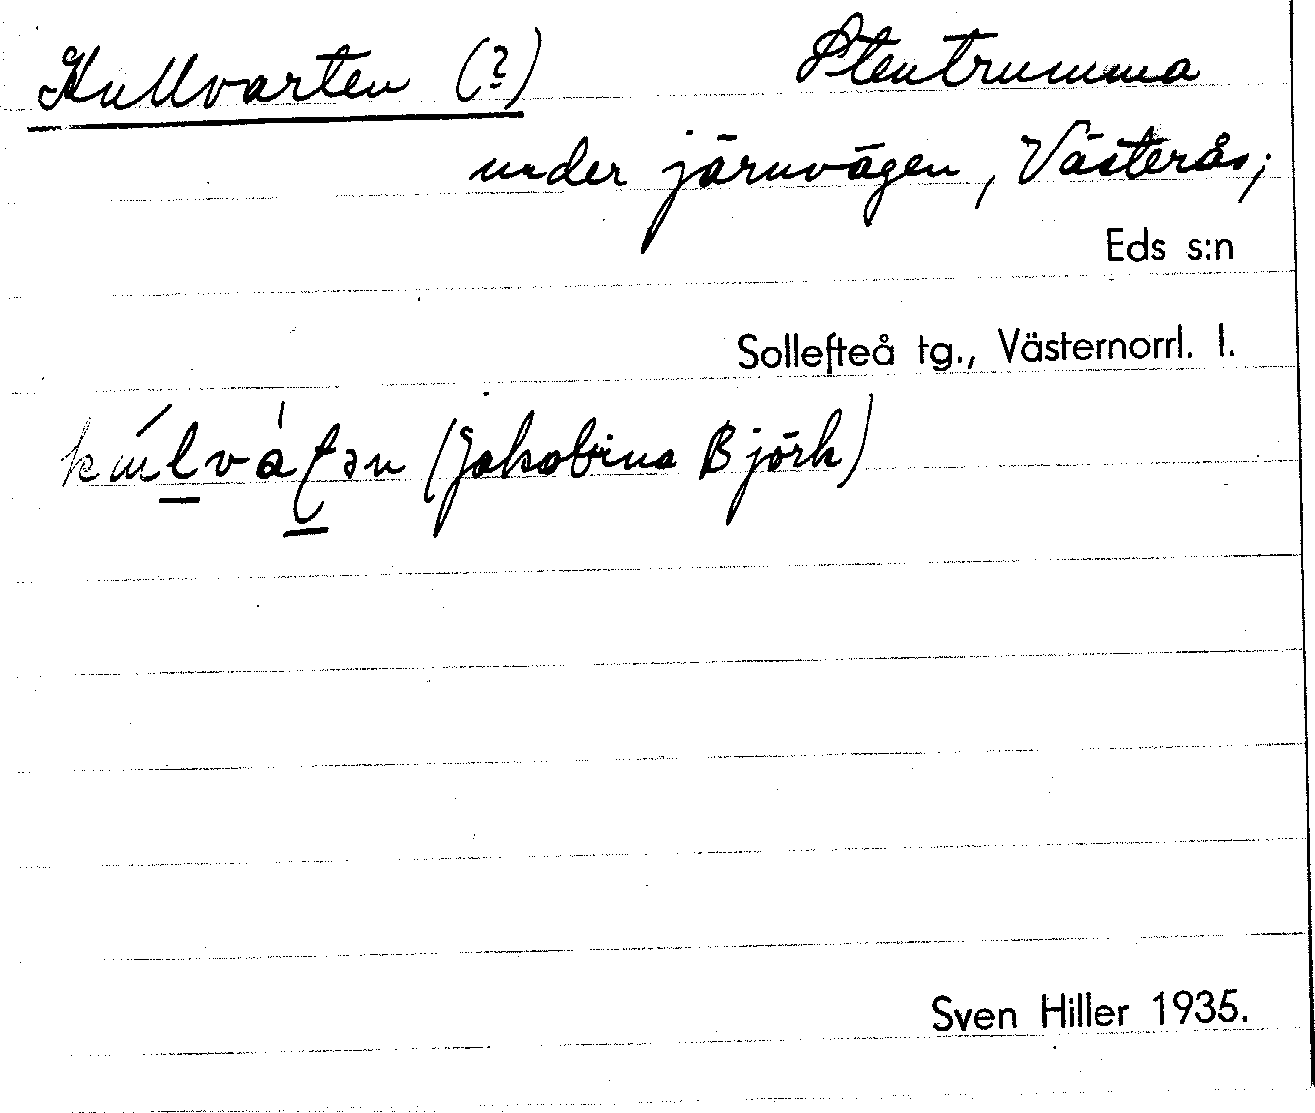 Kullvarten (?) Stentrumma
under järnvägen, Västerås;
Eds s:n
Sollefteå tg., Västernorrl. l.
(Jakobina Björk)
Sven Hiller 1935.